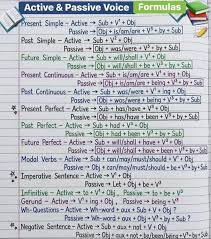 Active & Passive Voice Formulas
Present Simple - Active → Sub + V¹ + Obj
Passive → Obj + is/am/are + V³ + by + Sub
Past Simple - Active → Sub + V² + Obj
Passive → Obj + was/were + V³ + by + Sub
Future Simple - Active → Sub + will/shall + V¹ + Obj
Passive → Obj + will/shall + be + V³ + by + Sub
Present Continuous - Active → Sub + is/am/are + V¹ + ing + Obj
Passive → Obj + is/am/are + being + V³ + by + Sub
Past Continuous - Active → Sub + was/were + V¹ + ing + Obj
Passive → Obj + was/were + being + V³ + by + Sub
Present Perfect - Active → Sub + has/have + V³ + Obj
Passive → Obj + has/have + been + V³ + by + Sub
Past Perfect - Active → Sub + had + V³ + Obj
Passive → Obj + had + been + V³ + by + Sub
Future Perfect - Active → Sub + will/shall + have + V³ + Obj
Passive → Obj + will/shall + have + been + V³ + by + Sub
Modal Verbs - Active → Sub + can/may/must/should + V¹ + Obj
Passive → Obj + can/may/must/should + be + V³ + by + Sub
Imperative Sentence - Active → V¹ + Obj
Passive → Let + Obj + be + V³
Infinitive - Active → to + V¹ + Obj, Passive → to + be + V³
Gerund - Active → V¹ + ing + Obj, Passive → being + V³
Wh-Questions - Active → Wh-word + aux + Sub + V + Obj ?
Passive → Wh-word + aux + Obj + V³ + by + Sub ?
Negative Sentence - Active → Sub + aux + not + V + Obj
Passive → Obj + aux + not + be/been/being + V³ + by + Sub